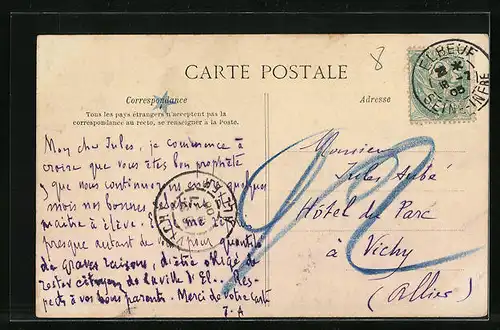 8
CARTE POSTALE
Correspondance
Adresse
Tous les pays étrangers n'acceptent pas la
correspondance au recto, se renseigner à la Poste.
ELBEUF
SEINE-INFRE
Mon cher Jules, je commence à
croire que vous êtes bon prophète
que nous continuerons quelque
mois nos bonnes
maitre à élève.
presque autant de pour
de graves raisons, d'être obligé de
rester citoyen de la ville d'El.. Res-
pects à vos bons parents. Merci de votre carte
J. A
Monsieur
Jules Aubé
Hôtel du Parc
à Vichy
(Allier)